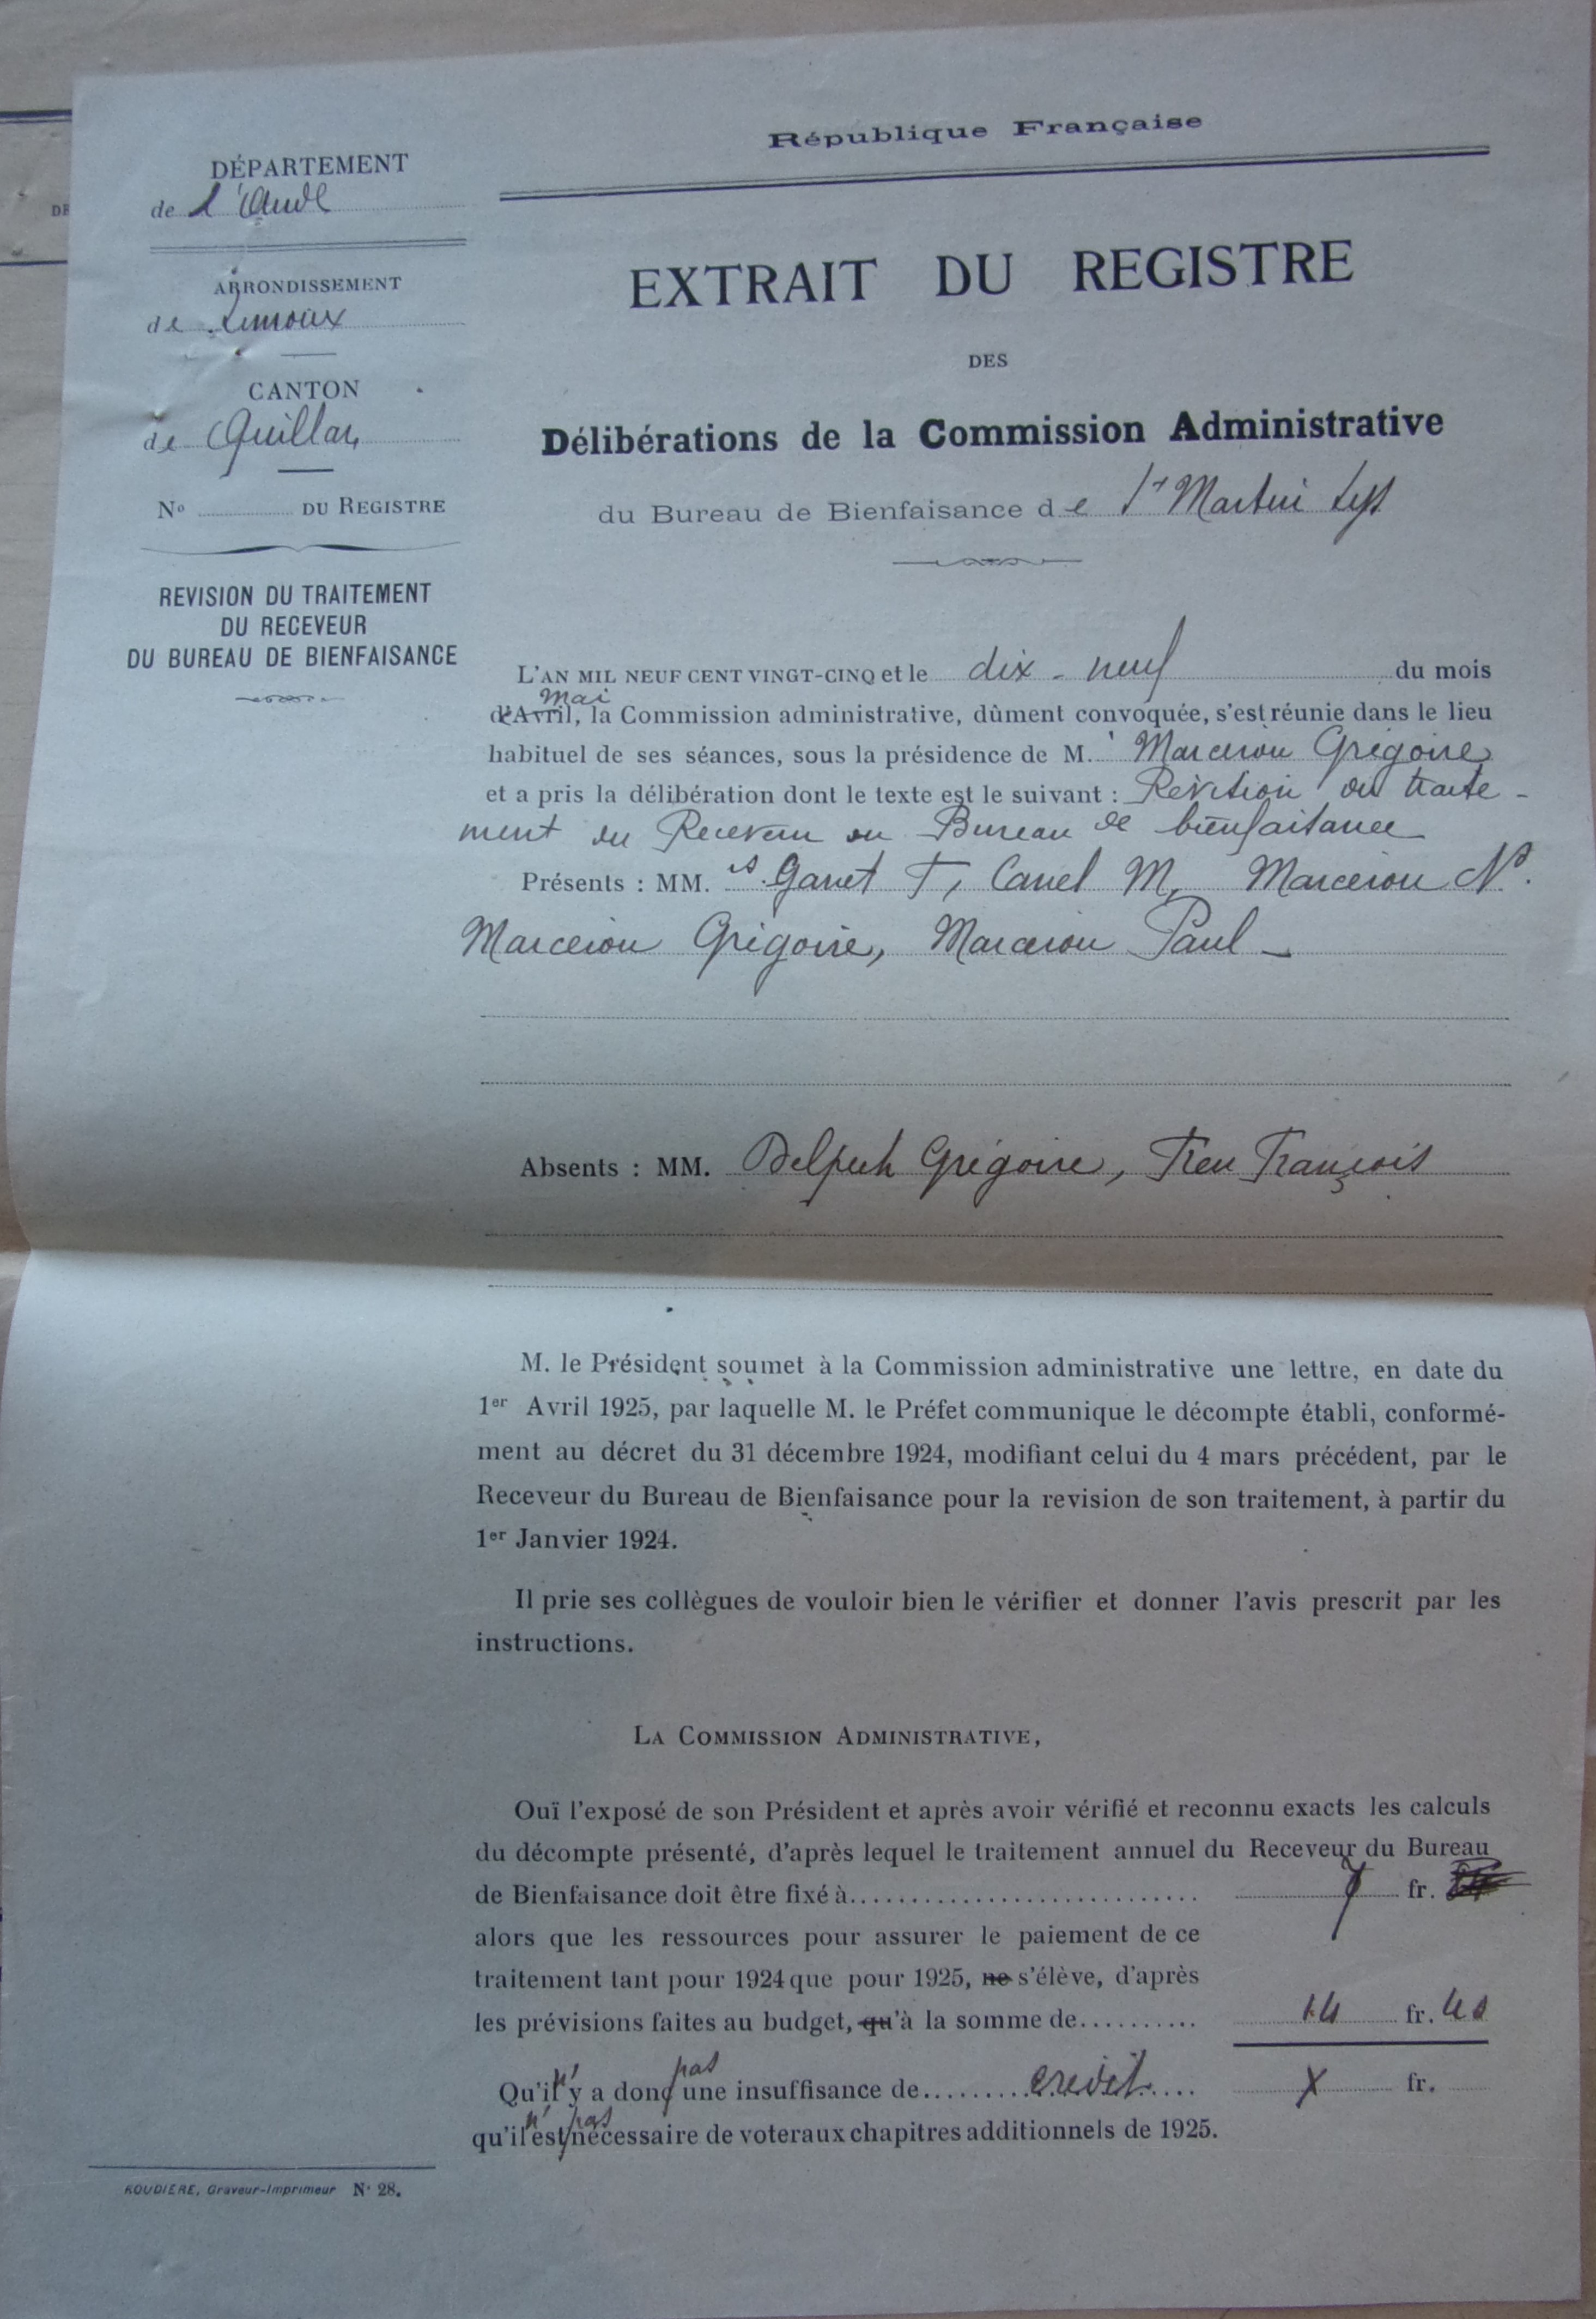 République Française
DÉPARTEMENT
de l'Aude
ARRONDISSEMENT
de Limoux
CANTON
de Quillan
No DU REGISTRE
REVISION DU TRAITEMENT
DU RECEVEUR
DU BUREAU DE BIENFAISANCE
EXTRAIT DU REGISTRE
DES
Délibérations de la Commission Administrative
du Bureau de Bienfaisance de St Martin Lys
L'AN MIL NEUF CENT VINGT-CINQ et le dix-neuf du mois
mai
d'Avril, la Commission administrative, dûment convoquée, s'est réunie dans le lieu
habituel de ses séances, sous la présidence de M. Marcerou Grégoire
et a pris la délibération dont le texte est le suivant : Révision du traite-
ment du Receveur du Bureau de bienfaisance
Présents : MM. rs T, Canel M, Marcerou N.
Marcerou Grégoire, Marcerou Paul -
Absents : MM. Delpech Grégoire, François
M. le Président soumet à la Commission administrative une lettre, en date du
1er Avril 1925, par laquelle M. le Préfet communique le décompte établi, conformé-
ment au décret du 31 décembre 1924, modifiant celui du 4 mars précédent, par le
Receveur du Bureau de Bienfaisance pour la revision de son traitement, à partir du
1er Janvier 1924.
Il prie ses collègues de vouloir bien le vérifier et donner l'avis prescrit par les
instructions.
LA COMMISSION ADMINISTRATIVE,
Ouï l'exposé de son Président et après avoir vérifié et reconnu exacts les calculs
du décompte présenté, d'après lequel le traitement annuel du Receveur du Bureau
de Bienfaisance doit être fixé à............................ 7 fr.
alors que les ressources pour assurer le paiement de ce
traitement tant pour 1924 que pour 1925, ne s'élève, d'après
les prévisions faites au budget, qu'à la somme de.......... 14 fr. 40
n' pas
Qu'il y a donc une insuffisance de........ crédit.... X fr.
n' pas
qu'il est nécessaire de voter aux chapitres additionnels de 1925.
ROUDIÈRE, Graveur-Imprimeur N° 28.